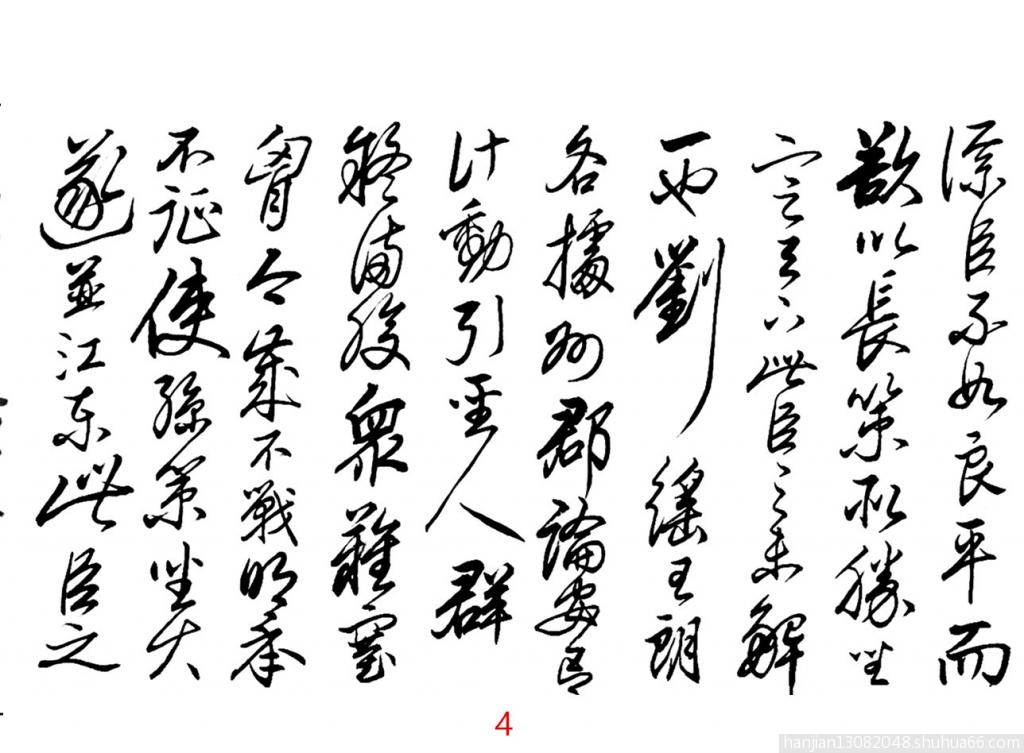 謀臣不如良平而
欲以長策取勝坐
定天下此臣之未解
一也劉繇王朗
各據州郡論安言
計動引聖人群
疑滿腹衆難塞
胷今歲不戰明年
不征使孫策坐大
遂並江東此臣之
4
hanjian13082048.shuhua66.com